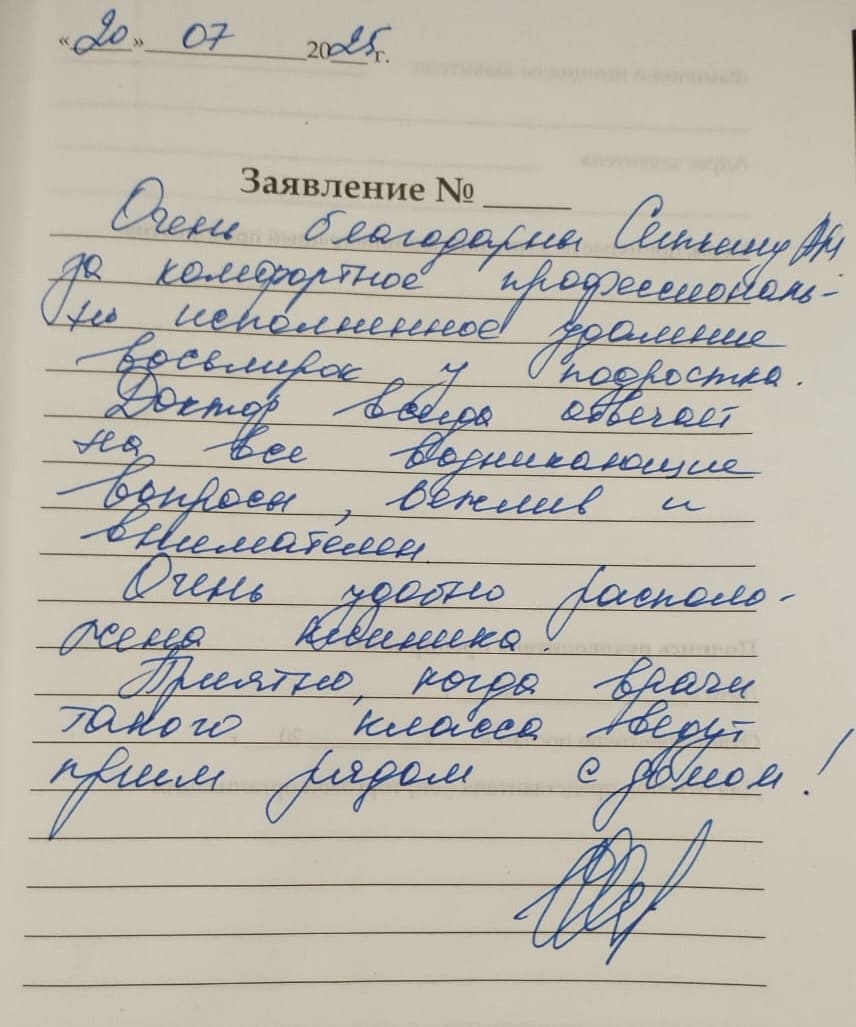 «20» 07 2025 г.
Заявление № ____
Очень благодарны АМ
за комфортное профессиональ-
но исполненное удаление
восьмирок у подростка.
Доктор всегда отвечает
на все возникающие
вопросы, вежлив и
внимателен.
Очень удобно располо-
жена клиника.
Приятно, когда врачи
такого класса ведут
прием рядом с домом!